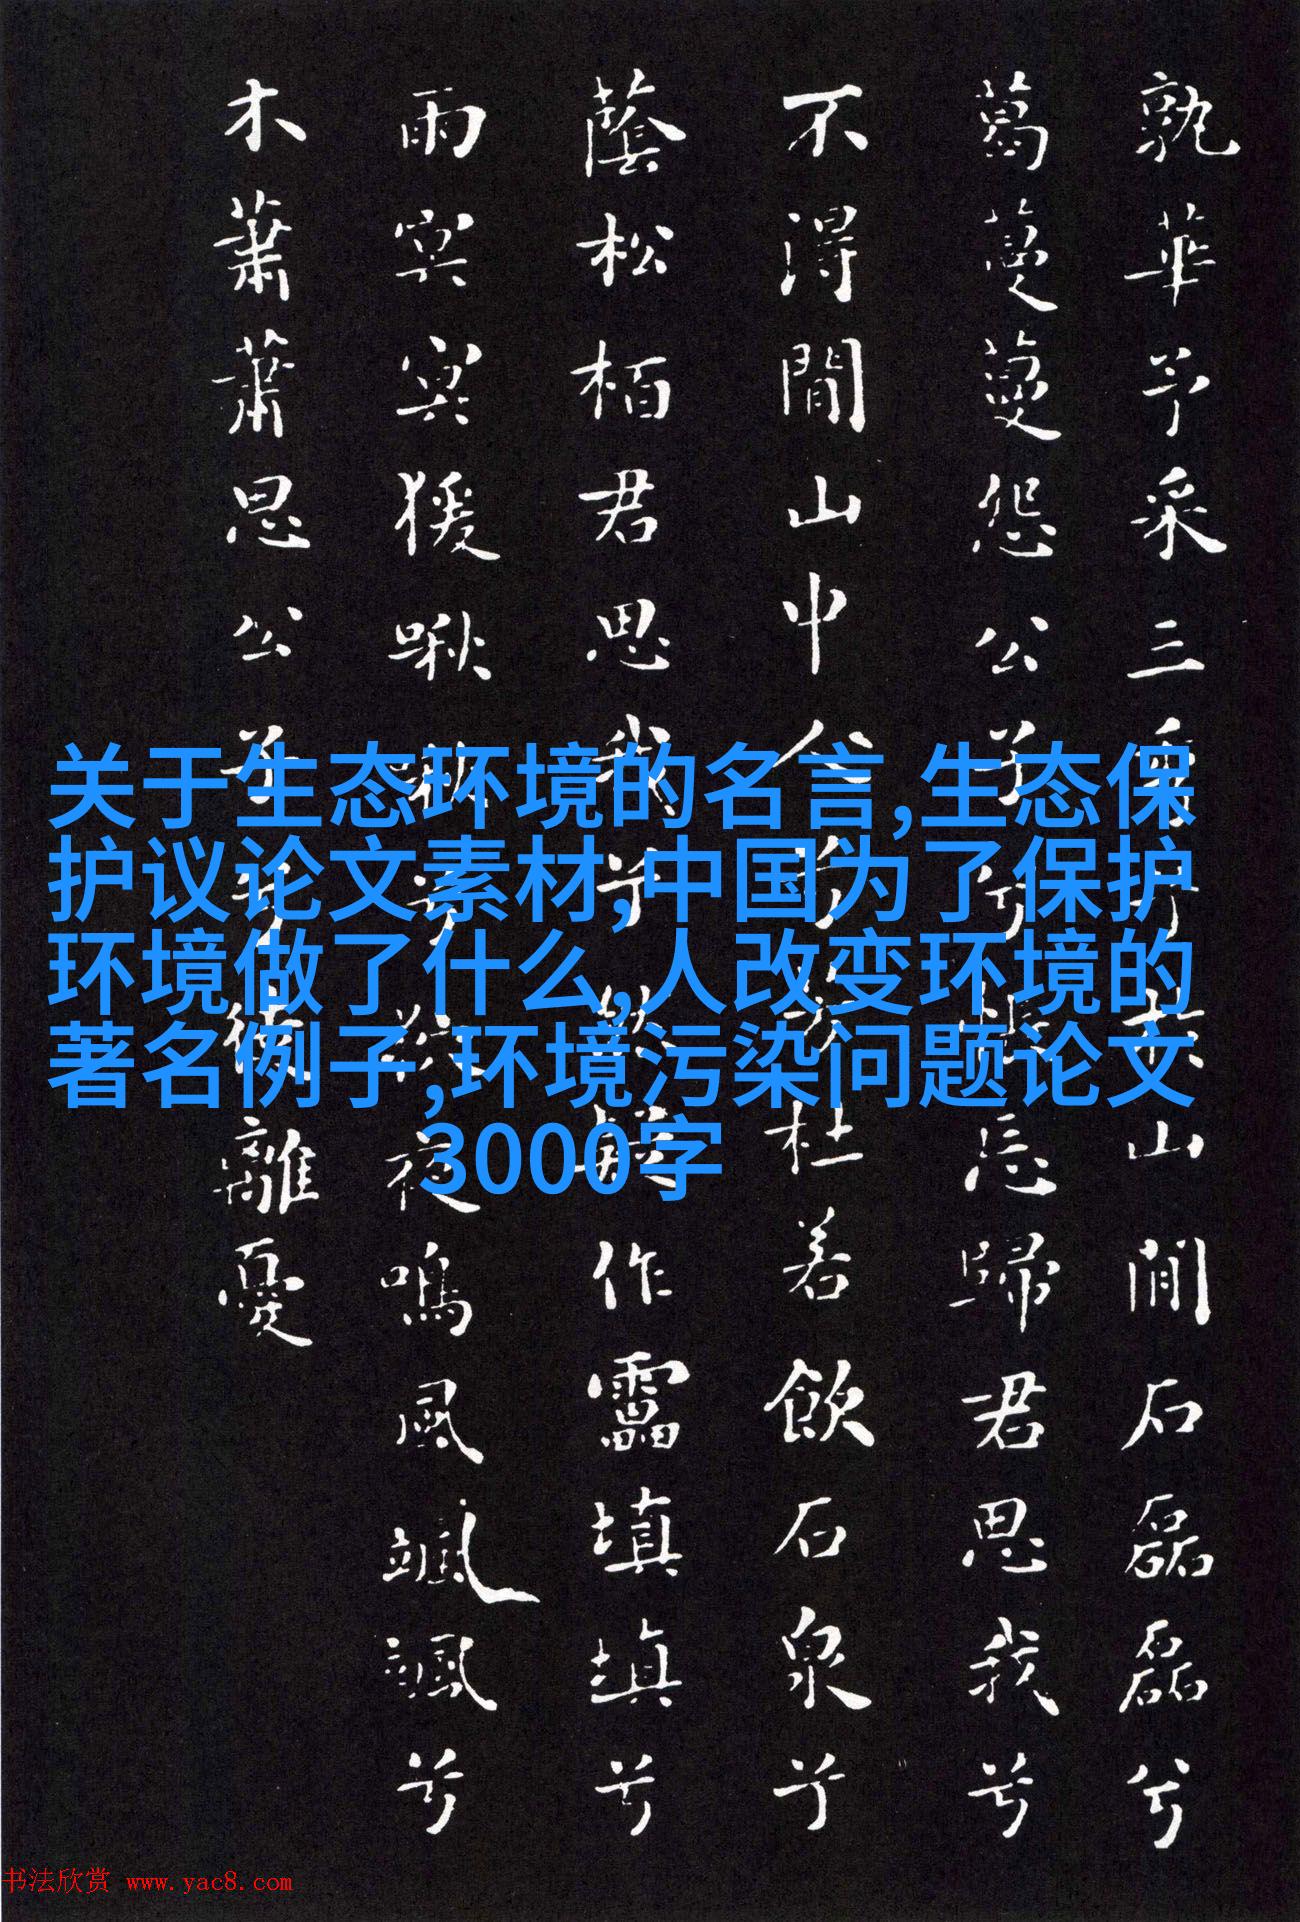 孰華予采三秀兮於山間石磊磊兮
葛蔓蔓怨公子兮悵忘歸君思我兮
不得間山中人兮芳杜若飲石泉兮
蔭松栢君思我兮然疑作靁填填兮
雨冥冥猨啾啾兮狖夜鳴風颯颯兮
木蕭蕭思公子兮徒離憂
关于生态环境的名言,生态保
护议论文素材,中国为了保护
环境做了什么,人改变环境的
著名例子,环境污染问题论文
3000字
书法欣赏 www.yac8.com